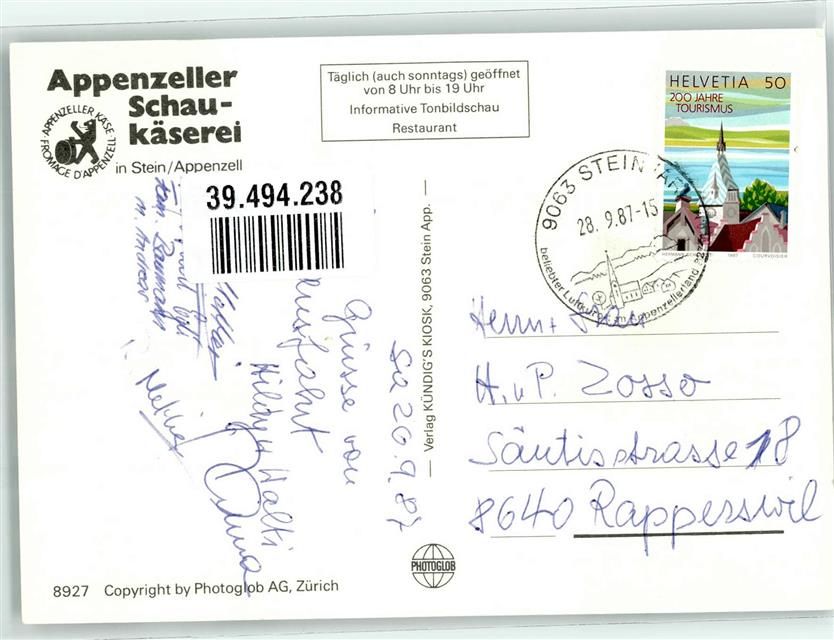 Appenzeller
Schau-
käserei
in Stein/Appenzell
APPENZELLER KÄSE
FROMAGE D'APPENZELL
Täglich (auch sonntags) geöffnet
von 8 Uhr bis 19 Uhr
Informative Tonbildschau
Restaurant
HELVETIA 50
200 JAHRE
TOURISMUS
1987 COURVOISIER
9063 STEIN
28.9.87-15
beliebter Luftkurort im Appenzellerland
39.494.238
Sa 26.9.87
Grüsse von
Hildy + Walti
— Verlag KÜNDIG'S KIOSK, 9063 Stein App. —
Herrn +
H. u P. Zosso
Säntisstrasse 18
8640 Rapperswil
PHOTOGLOB
8927 Copyright by Photoglob AG, Zürich